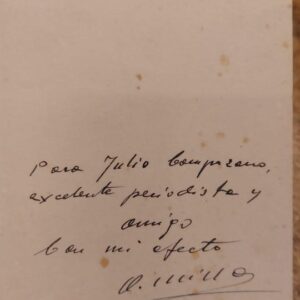 Para Julio Campuzano,
excelente periodista y
amigo
Con mi afecto